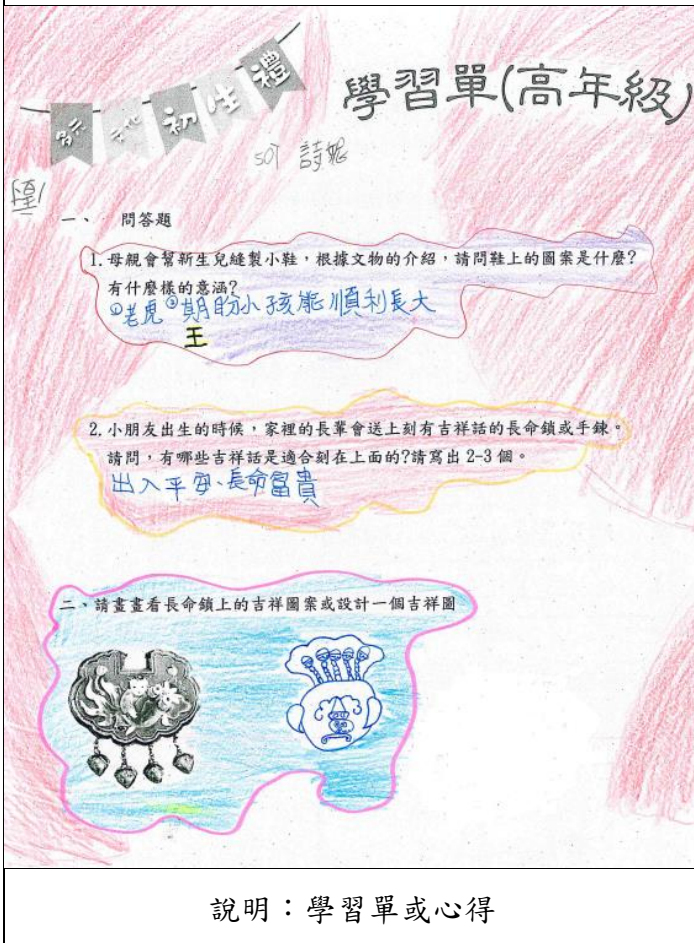 初生禮
學習單(高年級)
507 詩妮
一、 問答題
1.母親會幫新生兒縫製小鞋，根據文物的介紹，請問鞋上的圖案是什麼?
有什麼樣的意涵?
①老虎②期盼小孩能順利長大
王
2.小朋友出生的時候，家裡的長輩會送上刻有吉祥話的長命鎖或手鍊。
請問，有哪些吉祥話是適合刻在上面的?請寫出 2-3 個。
出入平安、長命富貴
二、請畫畫看長命鎖上的吉祥圖案或設計一個吉祥圖
說明：學習單或心得